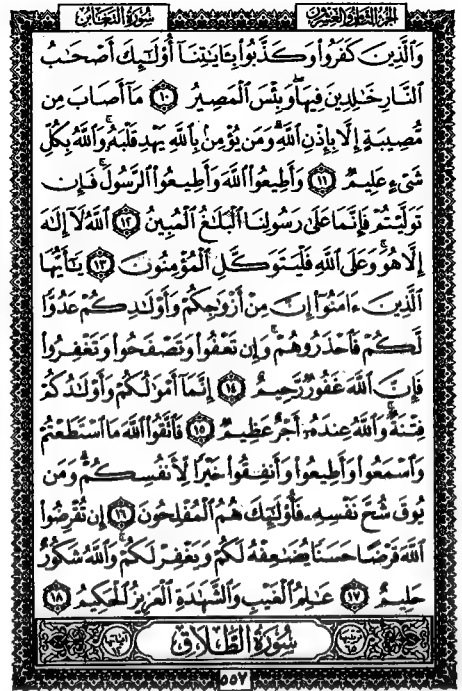 الجزء الثامن والعشرون سُورَةُ التَّغَابُنِ
وَٱلَّذِينَ كَفَرُوا۟ وَكَذَّبُوا۟ بِـَٔايَـٰتِنَآ أُو۟لَـٰٓئِكَ أَصْحَـٰبُ
ٱلنَّارِ خَـٰلِدِينَ فِيهَا ۖ وَبِئْسَ ٱلْمَصِيرُ ١٠ مَآ أَصَابَ مِن
مُّصِيبَةٍ إِلَّا بِإِذْنِ ٱللَّهِ ۗ وَمَن يُؤْمِنۢ بِٱللَّهِ يَهْدِ قَلْبَهُۥ ۚ وَٱللَّهُ بِكُلِّ
شَىْءٍ عَلِيمٌ ١١ وَأَطِيعُوا۟ ٱللَّهَ وَأَطِيعُوا۟ ٱلرَّسُولَ ۚ فَإِن
تَوَلَّيْتُمْ فَإِنَّمَا عَلَىٰ رَسُولِنَا ٱلْبَلَـٰغُ ٱلْمُبِينُ ١٢ ٱللَّهُ لَآ إِلَـٰهَ
إِلَّا هُوَ ۚ وَعَلَى ٱللَّهِ فَلْيَتَوَكَّلِ ٱلْمُؤْمِنُونَ ١٣ يَـٰٓأَيُّهَا
ٱلَّذِينَ ءَامَنُوٓا۟ إِنَّ مِنْ أَزْوَٰجِكُمْ وَأَوْلَـٰدِكُمْ عَدُوًّا
لَّكُمْ فَٱحْذَرُوهُمْ ۚ وَإِن تَعْفُوا۟ وَتَصْفَحُوا۟ وَتَغْفِرُوا۟
فَإِنَّ ٱللَّهَ غَفُورٌ رَّحِيمٌ ١٤ إِنَّمَآ أَمْوَٰلُكُمْ وَأَوْلَـٰدُكُمْ
فِتْنَةٌ ۚ وَٱللَّهُ عِندَهُۥٓ أَجْرٌ عَظِيمٌ ١٥ فَٱتَّقُوا۟ ٱللَّهَ مَا ٱسْتَطَعْتُمْ
وَٱسْمَعُوا۟ وَأَطِيعُوا۟ وَأَنفِقُوا۟ خَيْرًا لِّأَنفُسِكُمْ ۗ وَمَن
يُوقَ شُحَّ نَفْسِهِۦ فَأُو۟لَـٰٓئِكَ هُمُ ٱلْمُفْلِحُونَ ١٦ إِن تُقْرِضُوا۟
ٱللَّهَ قَرْضًا حَسَنًا يُضَـٰعِفْهُ لَكُمْ وَيَغْفِرْ لَكُمْ ۚ وَٱللَّهُ شَكُورٌ
حَلِيمٌ ١٧ عَـٰلِمُ ٱلْغَيْبِ وَٱلشَّهَـٰدَةِ ٱلْعَزِيزُ ٱلْحَكِيمُ ١٨
سُورَةُ الطَّلَاقِ
٥٥٧